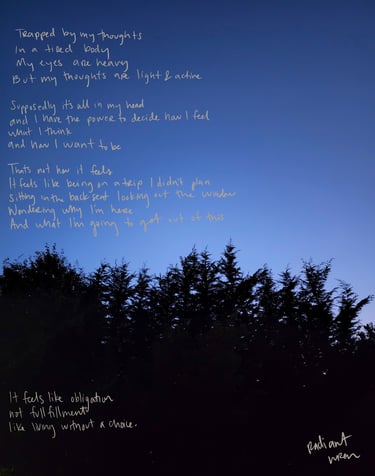 Trapped by my thoughts
In a tired body
My eyes are heavy
But my thoughts are light & active
Supposedly it's all in my head
and I have the power to decide how I feel
what I think
and how I want to be
Thats not how it feels
It feels like being on a trip I didn't plan
Sitting in the back seat looking out the window
Wondering why I'm here
And what I'm going to get out of this
It feels like obligation
not fullfillment
like living without a choice.
Radiant
wren